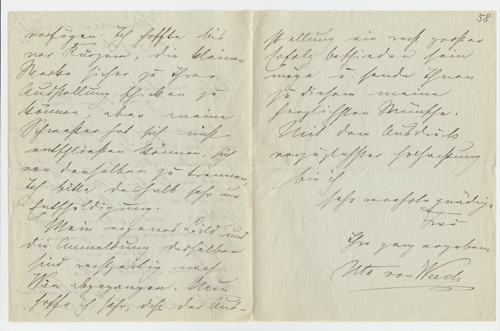 verfügen. Ich hoffte bis
vor Kurzem, die kleinen
Werke sicher zu Ihrer
Ausstellung schicken zu
können, aber meine
Schwester hat sich nicht
entschließen können, sich
von denselben zu trennen,
ich bitte deshalb sehr um
Entschuldigung.
Mein eigenes Bild und
die Anmeldung desselben
sind rechtzeitig nach
Wien abgegangen. Nun
hoffe ich sehr, daß der Aus-
58
stellung ein recht großer
Erfolg beschieden sein
möge u. sende Ihnen
zu diesem meine
herzlichsten Wünsche.
Mit dem Ausdruck
vorzüglichster Hochachtung
bin ich
sehr verehrte gnädige
Frau
Ihre ganz ergebene
von Weech